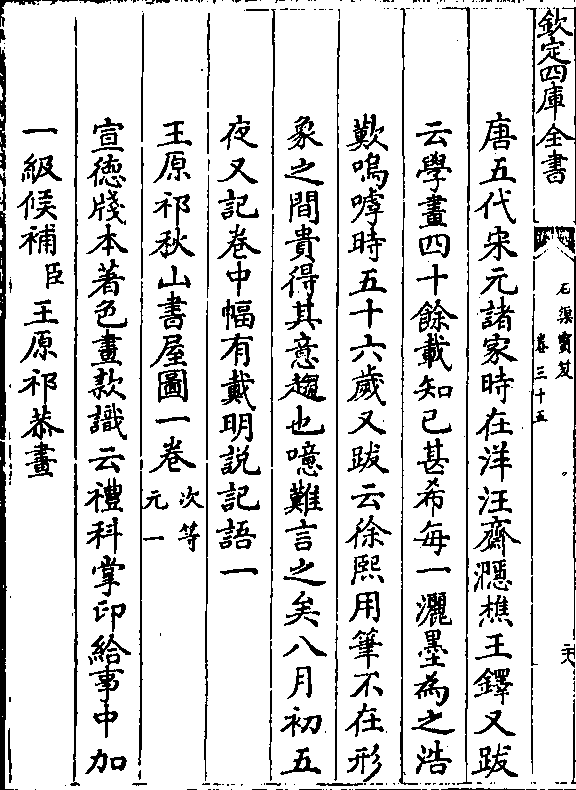 欽定四庫全書
石渠寶笈
卷三十五
唐五代宋元諸家時在洋汪齋濦樵王鐸又跋
云學畫四十餘載知已甚希每一灑墨為之浩
歎嗚嘑時五十六歲又跋云徐熙用筆不在形
象之間貴得其意趣也噫難言之矣八月初五
夜又記卷中幅有戴明説記語一
王原祁秋山書屋圖一卷次等元一
宣德牋本著色畫款識云禮科掌印給事中加
一級候補臣王原祁恭畫